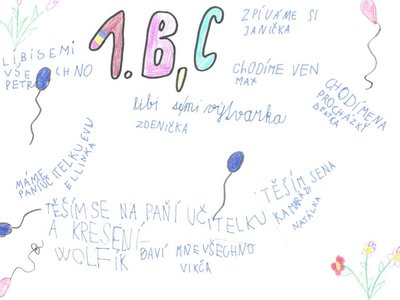 1.B,C
ZPÍVÁME SI
JANIČKA
LÍBÍ SE MI
VŠECHNO
PETR
CHODÍME VEN
MAX
CHODÍME NA
PROCHÁZKY
BEATKA
líbí se mi výtvarka
ZDENIČKA
MÁME
PANÍ UČITELKU EVU
ELLINKA
TĚŠÍM SE NA
KAMARÁDY
NATÁLKA
TĚŠÍM SE NA PAŇÍ UČITELKU
A KRESENÍ
WOLFÍK
BAVÍ MNE VŠECHNO
VIKČA